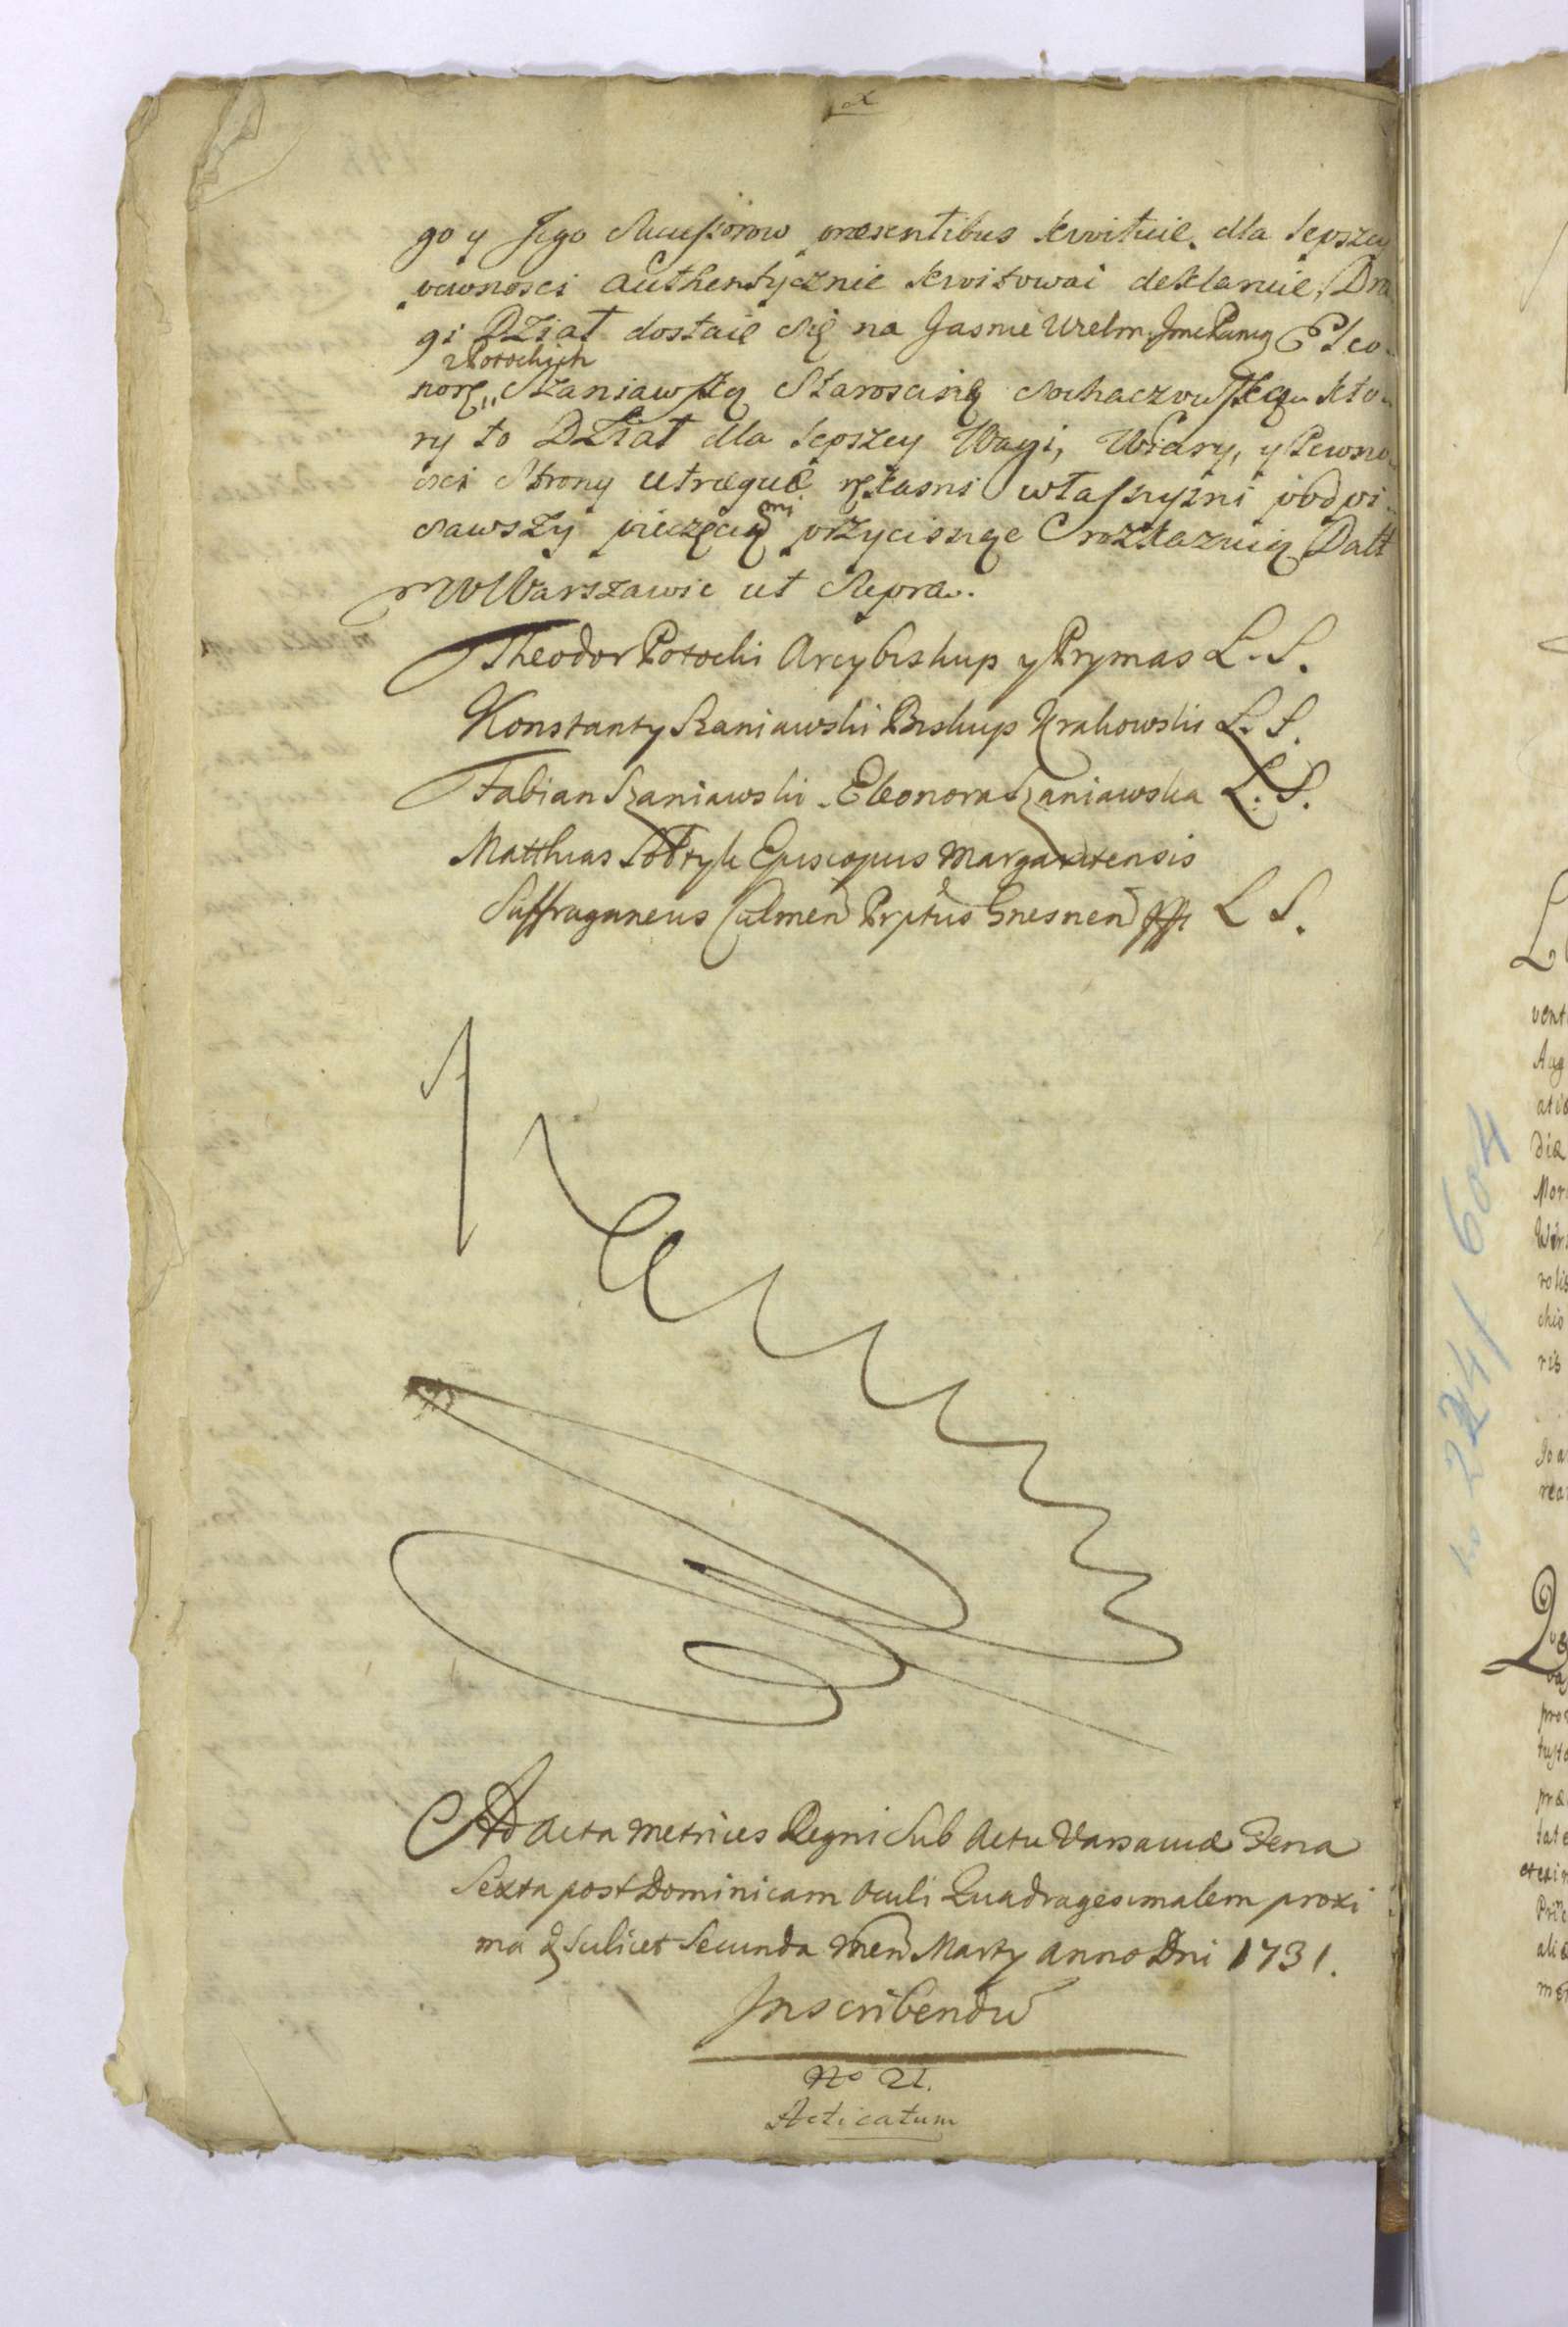 go y Jego Sucessorow præsentibus kwituie, dla lepszey
pewnosci authentycznie kwitowac deklaruie, Dru
gi Dział dostaie się na Jasnie Wielm: Jmc Panią Eleo-
z Potockich
norę Szaniawską Starościnę Sochaczewską, kto-
ry to Dział dla lepszey Wagi, Wiary, y Pewno-
sci Strony utræque rękami własnymi podpi-
sawszy pieczęciami przycisnąc rozkazuią Datt
w Warszawie ut Supra.
Theodor Potocki Arcybiskup y Prymas L. S.
Konstanty Szaniawski Biskup Krakowski L. S.
Fabian Szaniawski. Eleonora Szaniawska L. S.
Matthias Sołtyk Episcopus Margaritensis
Suffraganeus Culmen Pptus Gnesnen L S.
Ad Acta Metrices Regni Sub Actu Varsaviæ Feria
Sexta post Dominicam Oculi Quadragesimalem proxi
ma scilicet Secunda Men Marty Anno Dni 1731.
Inscribendū
No 21.
Acticatum
241 604